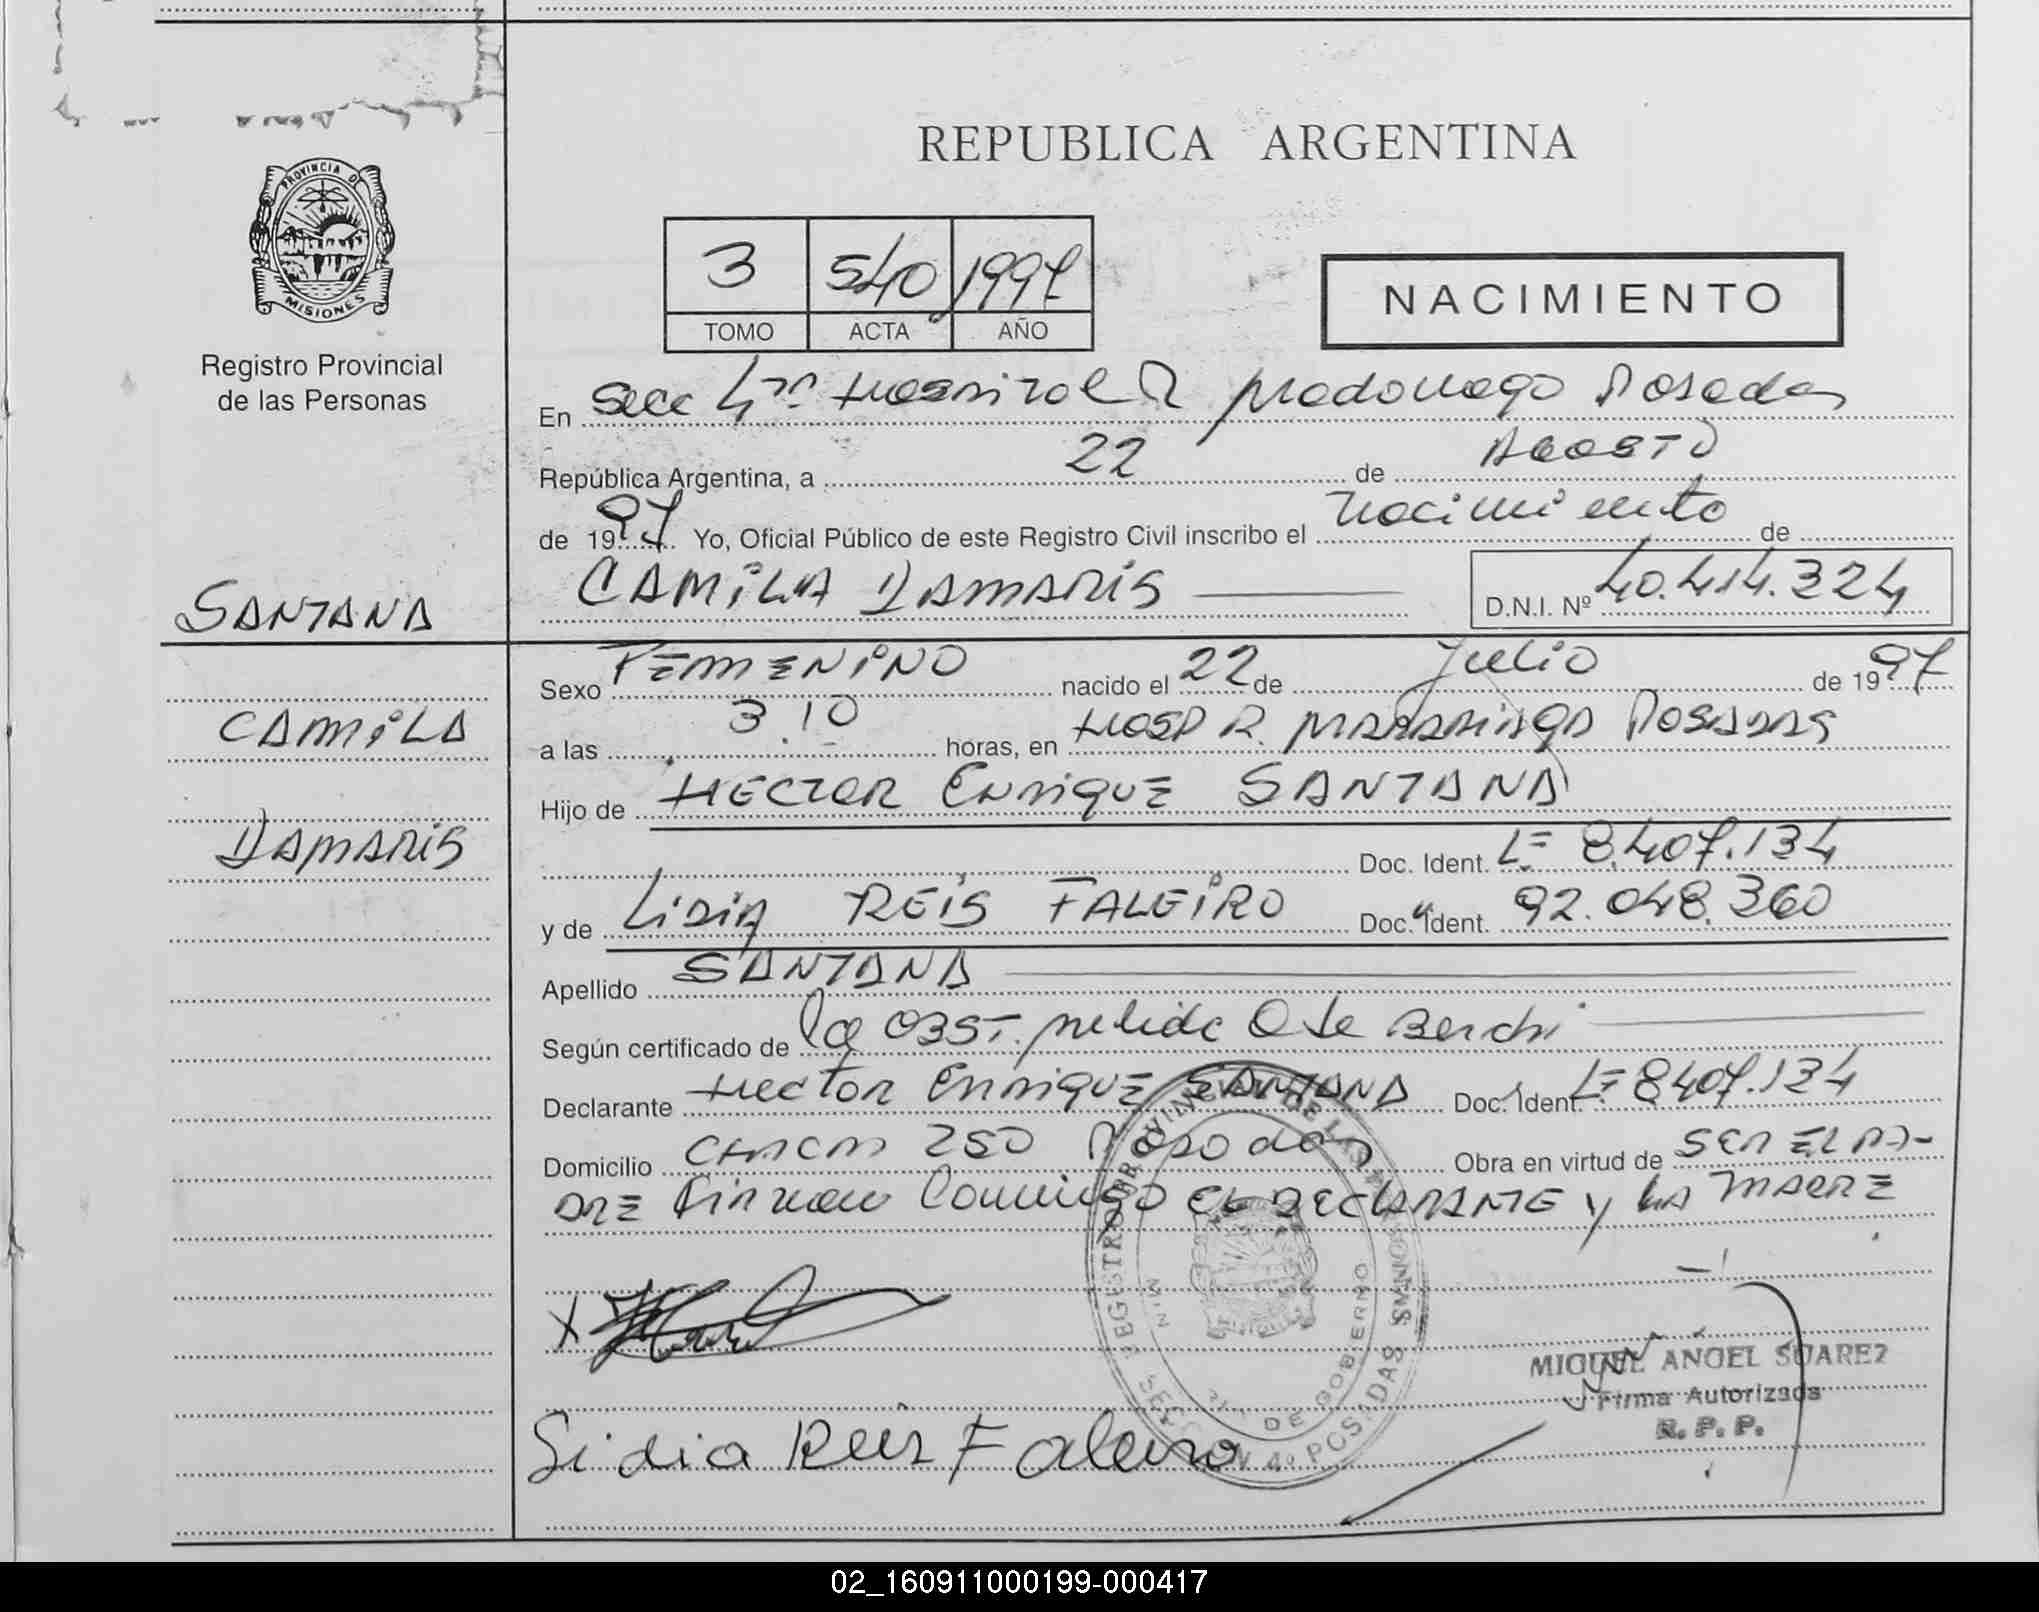 REPUBLICA ARGENTINA
PROVINCIA DE
MISIONES
Registro Provincial
de las Personas
3 540 1997
TOMO ACTA AÑO
NACIMIENTO
En Secc 4ta Hospital R Madariaga Posadas
República Argentina, a 22 de AGOSTO
de 1997 Yo, Oficial Público de este Registro Civil inscribo el nacimiento de
CAMILA DAMARIS D.N.I. Nº 40.414.324
SANTANA
CAMILA
DAMARIS
Sexo FEMENINO nacido el 22 de Julio de 1997
a las 3.10 horas, en HOSP R. MADARIAGA POSADAS
Hijo de HECTOR ENRIQUE SANTANA
Doc. Ident. LE 8.407.134
y de LIDIA REIS FALEIRO Doc. Ident. 92.048.360
Apellido SANTANA
Según certificado de la OBST. Nelida Berchi
Declarante HECTOR ENRIQUE SANTANA Doc. Ident. LE 8407.134
Domicilio CHACRA 250 Posadas Obra en virtud de SER EL PA-
DRE Firman Conmigo EL DECLARANTE y LA MADRE
X
Lidia Reis Faleiro
MIGUEL ANGEL SUAREZ
Firma Autorizada
R. P. P.
REGISTRO PROVINCIAL DE LAS PERSONAS
SECCION 4º POSADAS MISIONES
MIN DE GOBIERNO
02_160911000199-000417